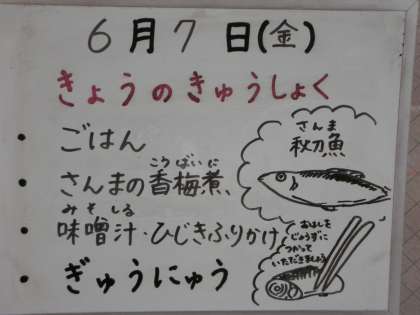 6月7日(金)
きょうのきゅうしょく
ごはん
こうばいに
さんまの香梅煮、
みそしる
味噌汁・ひじきふりかけ
ぎゅうにゅう
さんま
秋刀魚
おはしを
じょうずに
つかって
いただきましょう